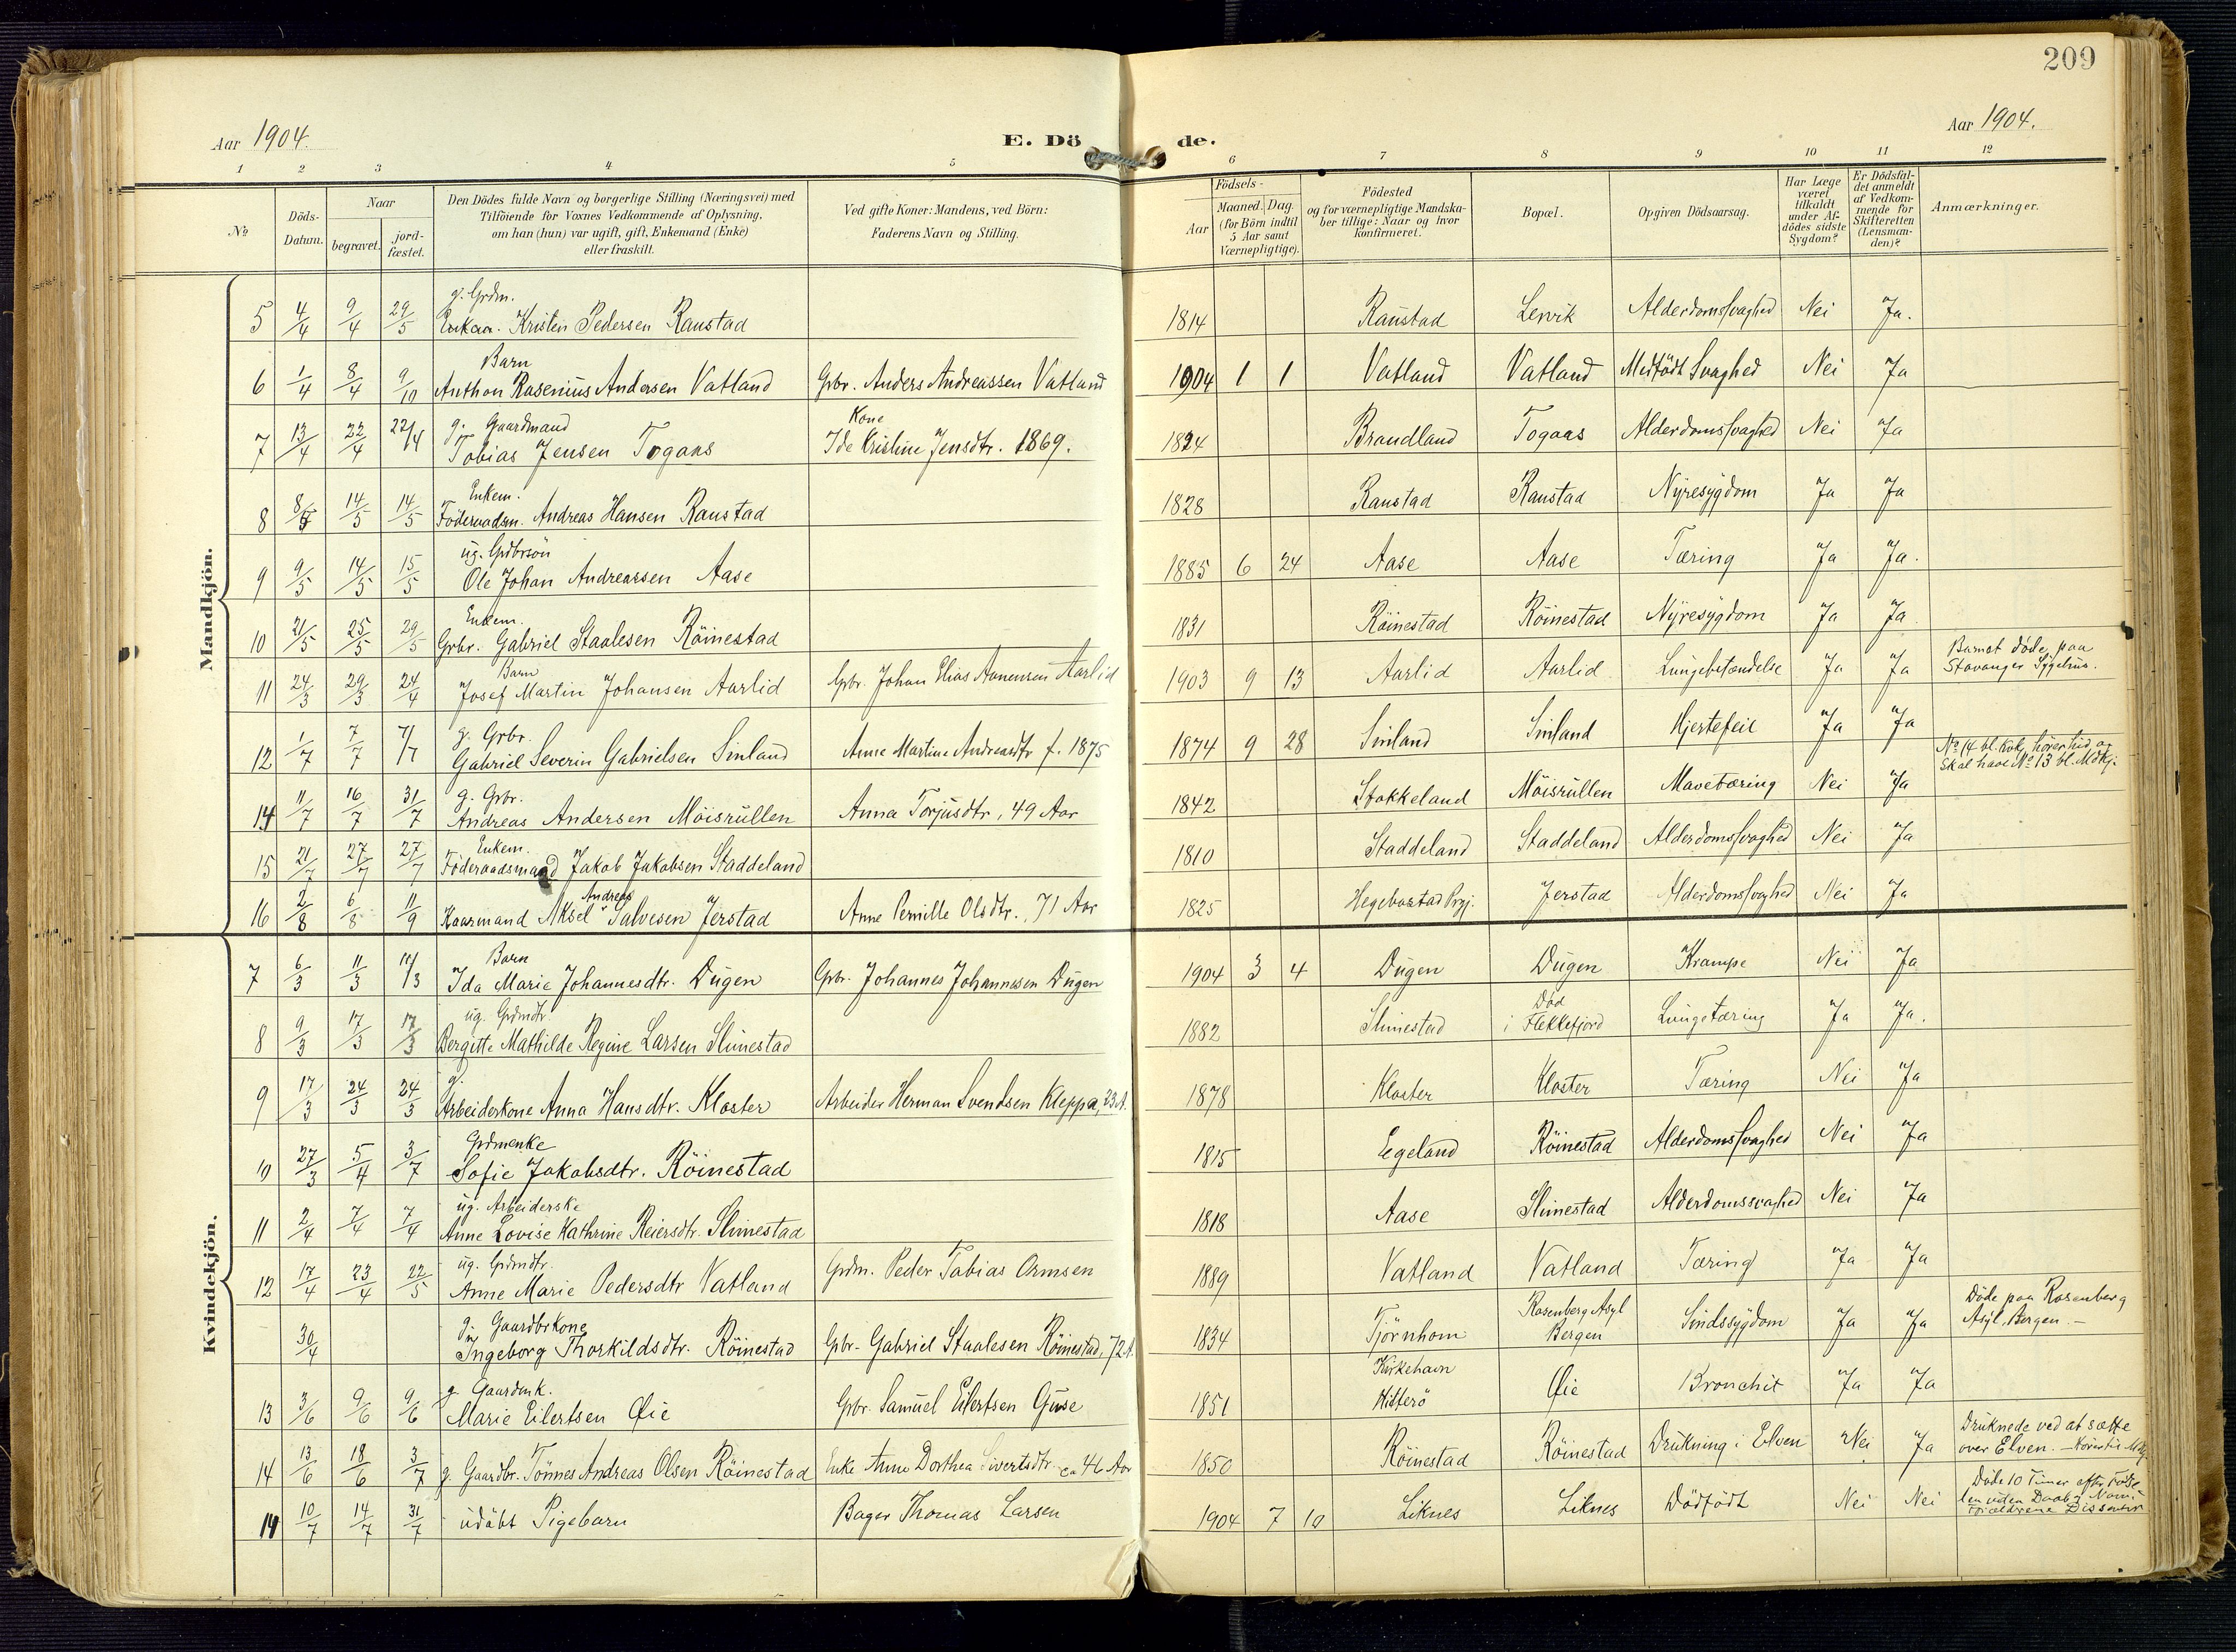 209
Aar 1904.
E. Dö de.
Aar 1904.
1 2 3 4 5 6 7 8 9 10 11 12
No
Döds-Datum.
Naar
begravet.
jord-fæstet.
Den Dödes fulde Navn og borgerlige Stilling (Næringsvei) med
Tilföiende for Voxnes Vedkommende af Oplysning,
om han (hun) var ugift, gift, Enkemand (Enke)
eller fraskilt.
Ved gifte Koner: Mandens, ved Börn:
Faderens Navn og Stilling.
Födsels-
Aar
Maaned. Dag.
(for Börn indtil
5 Aar samt
Værnepligtige).
Födested
og for værnepligtige Mandska-
ber tillige: Naar og hvor
konfirmeret.
Bopæl.
Opgiven Dödsaarsag.
Har Læge
været
tilkaldt
under Af-
dödes sidste
Sygdom?
Er Dödsfal-
det anmeldt
af Vedkom-
mende for
Skifteretten
(Lensman-
den)?
Anmærkninger.
Mandkjön.
g. Grdm.
5 4/4 9/4 29/5 Kristen Pedersen Raustad 1814 Raustad Lervik Alderdomssvaghed Nei Ja.
Barn
6 1/4 8/4 9/10 Anthon Rasenius Andersen Vatland Grbr. Anders Andreassen Vatland 1904 1 1 Vatland Vatland Medfödt Svaghed Nei Ja
g. Gaardmand Kone
7 13/4 22/4 22/4 Tobias Jensen Togaas Ide Kristine Jensdtr. 1869. 1824 Brandland Togaas Alderdomssvaghed Nei Ja
Enkem.
8 8/5 14/5 14/5 Föderaadsm. Andreas Hansen Raustad 1828 Raustad Raustad Nyresygdom Ja Ja
ug. Grdbrsön
9 9/5 14/5 15/5 Ole Johan Andreassen Aase 1885 6 24 Aase Aase Tæring Ja Ja.
Enkem.
10 21/5 25/5 29/5 Grbr. Gabriel Staalesen Röinestad 1831 Röinestad Röinestad Nyresygdom Ja Ja
Barn
11 24/3 29/3 24/4 Josef Martin Johansen Aarlid Grbr. Johan Elias Aanensen Aarlid 1903 9 13 Aarlid Aarlid Lungebetændelse Ja Ja Barnet döde paa
Stavanger Sygehus.
g. Grbr.
12 1/7 7/7 7/7 Gabriel Severin Gabrielsen Sinland Anne Martine Andreasdtr f. 1875 1874 9 28 Sinland Sinland Hjertefeil Ja Ja
No 14 bl. Kvk. hörer hid og
skal have No 13 bl. Mdkj.
g. Grbr.
14 11/7 16/7 31/7 Andreas Andersen Möisrullen Anna Torjusdtr, 49 Aar 1842 Stokkeland Möisrullen Mavetæring Nei Ja
Enkem.
15 21/7 27/7 27/7 Föderaadsmand Jakob Jakobsen Staddeland 1810 Staddeland Staddeland Alderdomssvaghed Nei Ja
Andreas
16 2/8 6/8 11/9 Kaarmand Aksel Salvesen Jerstad Anne Pernille Olsdtr., 71 Aar 1825 Hegebostad Prgj. Jerstad Alderdomssvaghed Nei Ja
Kvindekjön.
Barn
7 6/3 11/3 11/3 Ida Marie Johannesdtr. Dugen Grbr. Johannes Johannesen Dugen 1904 3 4 Dugen Dugen Krampe Nei Ja
ug. Grdmdtr.
8 9/3 17/3 17/3 Bergitte Mathilde Regine Larsen Slimestad 1882 Slimestad Död
i Flekkefjord Lungetæring Ja Ja.
g.
9 17/3 24/3 24/3 Arbeiderkone Anna Hansdtr. Kloster Arbeider Herman Svendsen Kleppa, 23 A. 1878 Kloster Kloster Tæring Nei Ja
Grdmenke
10 27/3 5/4 3/7 Sofie Jakobsdtr. Röinestad 1815 Egeland Röinestad Alderdomssvaghed Nei Ja
ug. Arbeiderske
11 2/4 7/4 7/4 Anne Lovise Kathrine Reiersdtr. Slimestad 1818 Aase Slimestad Alderdomssvaghed Nei Ja
ug. Grdmdtr.
12 17/4 23/4 22/5 Anne Marie Pedersdtr Vatland Grdm. Peder Tobias Ormsen 1889 Vatland Vatland Tæring Ja Ja
g. Gaardbrkone
30/4 Ingeborg Thorkildsdtr. Röinestad Grbr. Gabriel Staalesen Röinestad, 72 A. 1834 Tjörnhom Rosenberg Asyl
Bergen Sindssygdom Ja Ja Döde paa Rosenberg
Asyl, Bergen. –
g. Gaardmk.
13 3/6 9/6 9/6 Marie Eilertsen Øie Grbr. Samuel Eilertsen Guse 1851 Kirkehavn
Hitterö Øie Bronchit Ja Ja
14 13/6 18/6 3/7 g. Gaardbr. Tönnes Andreas Olsen Röinestad Enke Anne Dorthea Sivertsdtr. ca 46 Aar 1850 Röinestad Röinestad Drukning i Elven Nei Ja Druknede ved at sætte
over Elven. –
14 10/7 14/7 31/7 udöbt Pigebarn Bager Thomas Larsen 1904 7 10 Liknes Liknes Dödfödt Nei Nei Döde 10 Timer efter Födse-
len uden Daab &amp; Navn
Forældrene Dissenter